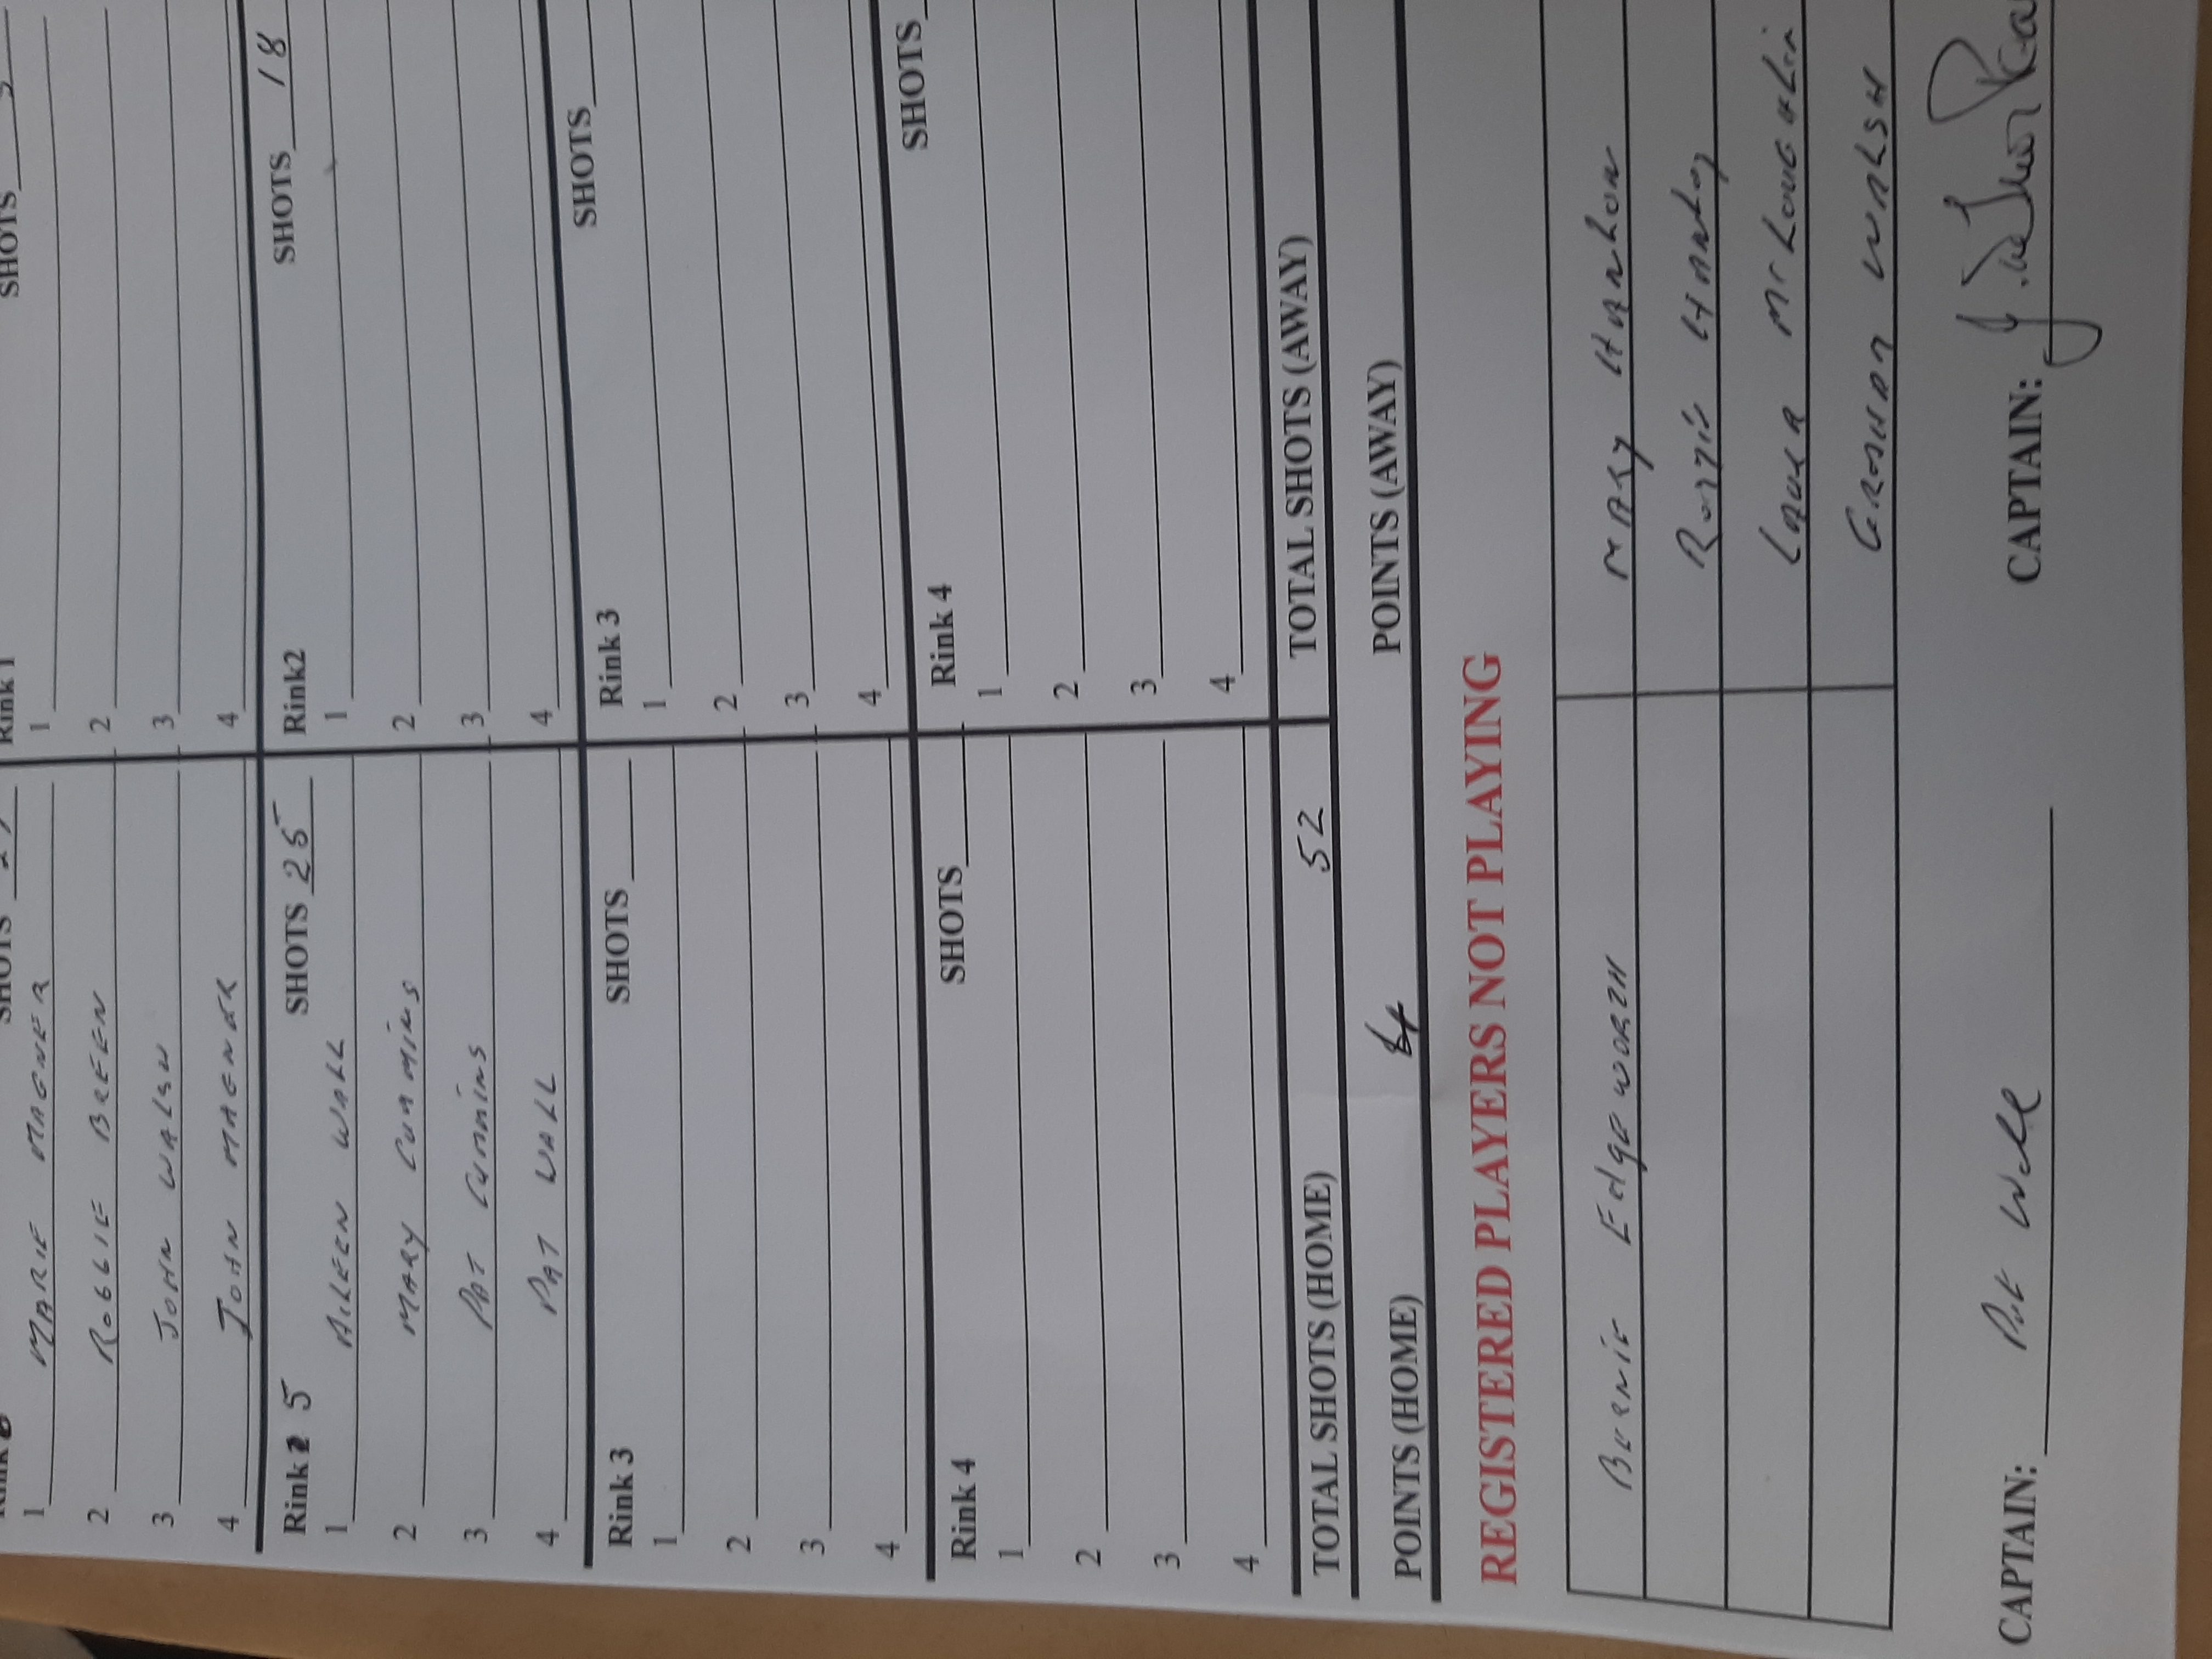 SHOTS SHOTS
Rink 1
1 MARIE MAGNER 1
2 ROBBIE BREEN 2
3 JOHN WALSH 3
4 JOHN MAGNER 4
Rink 5 SHOTS 25 Rink2 SHOTS 18
1 AILEEN WALL 1
2 MARY CUMMINS 2
3 PAT CUMMINS 3
4 PAT WALL 4
Rink 3 SHOTS Rink 3 SHOTS
1 1
2 2
3 3
4 4
Rink 4 SHOTS Rink 4 SHOTS
1 1
2 2
3 3
4 4
TOTAL SHOTS (HOME) 52 TOTAL SHOTS (AWAY)
POINTS (HOME) POINTS (AWAY)
REGISTERED PLAYERS NOT PLAYING
Bernie Edgeworth MARY HANLON
HANLEY
LAURA McLOUGHLIN
WALSH
CAPTAIN: Pat Wall CAPTAIN: